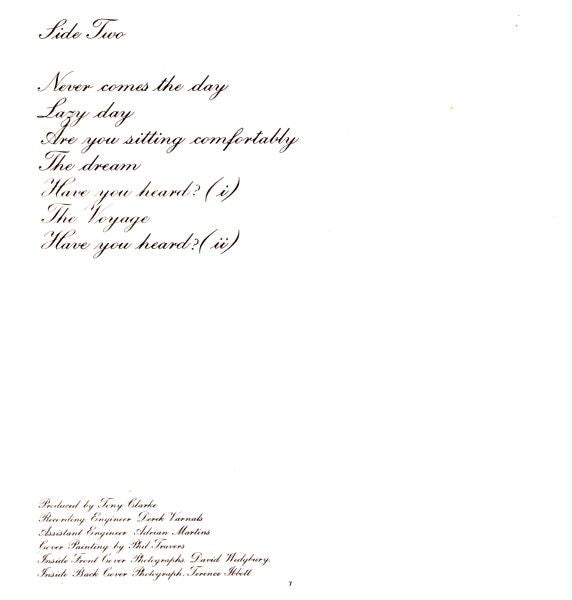 Side Two
Never comes the day
Lazy day
Are you sitting comfortably
The dream
Have you heard? (i)
The Voyage
Have you heard? (ii)
Produced by Tony Clarke
Recording Engineer Derek Varnals
Assistant Engineer Adrian Martins
Cover Painting by Phil Travers
Inside Front Cover Photographs, David Wedgbury.
Inside Back Cover Photograph, Terence Ibbott
7